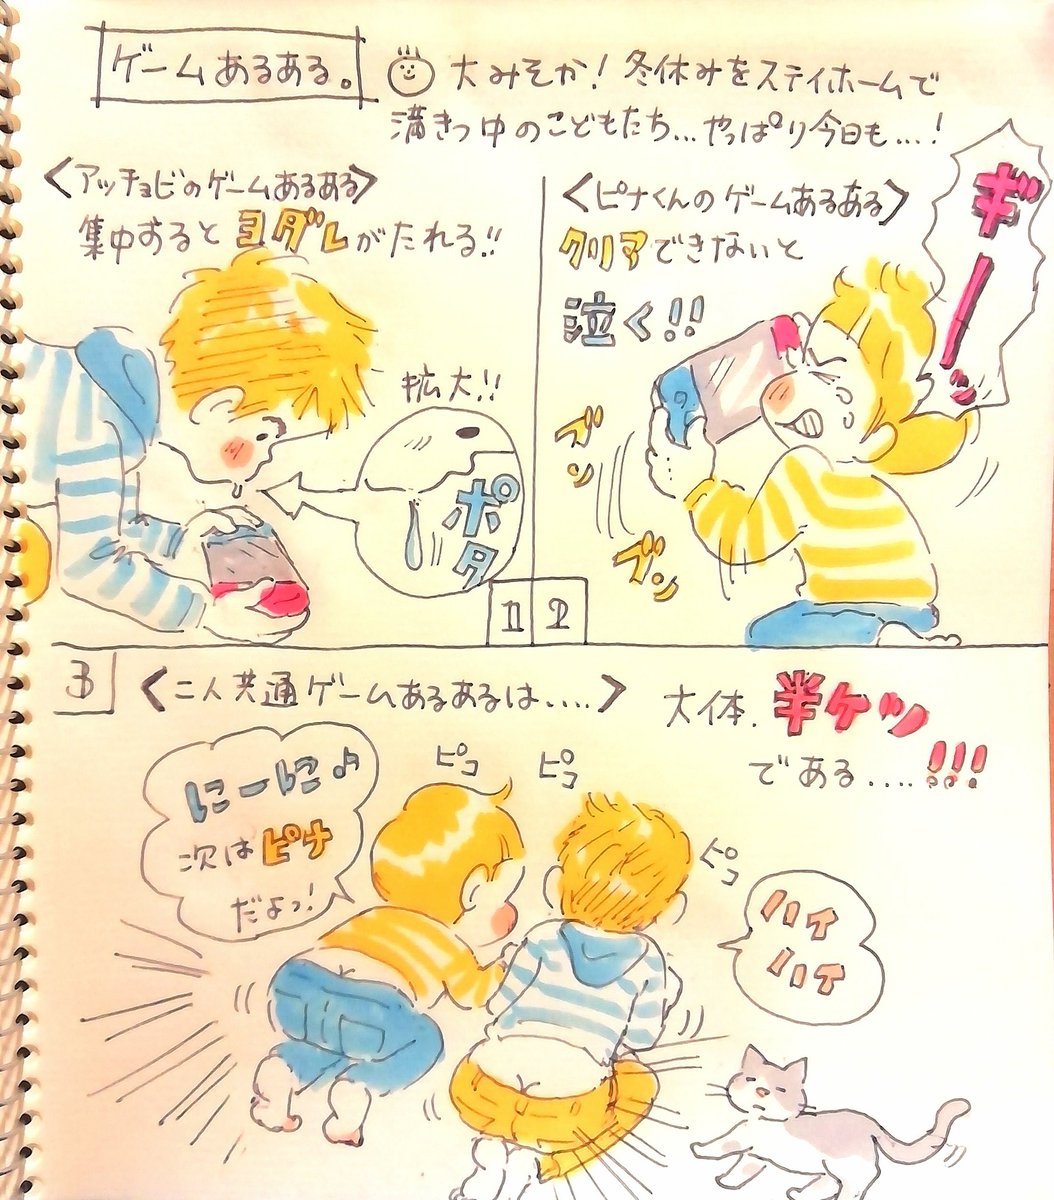 ゲームあるある。
大みそか!冬休みをステイホームで
満きつ中のこどもたち…やっぱり今日も…!
<アッチョビのゲームあるある>
集中すると ヨダレがたれる!!
拡大!!
ポタ
1
<ピナくんのゲームあるある>
クリアできないと
泣く!!
ギーーッ
ズン
ズン
2
3
<二人共通ゲームあるあるは....>
大体.半ケツ
である....!!!
にーに♪
次はピナ
だよっ!
ピコ
ピコ
ピコ
ハイ
ハイ